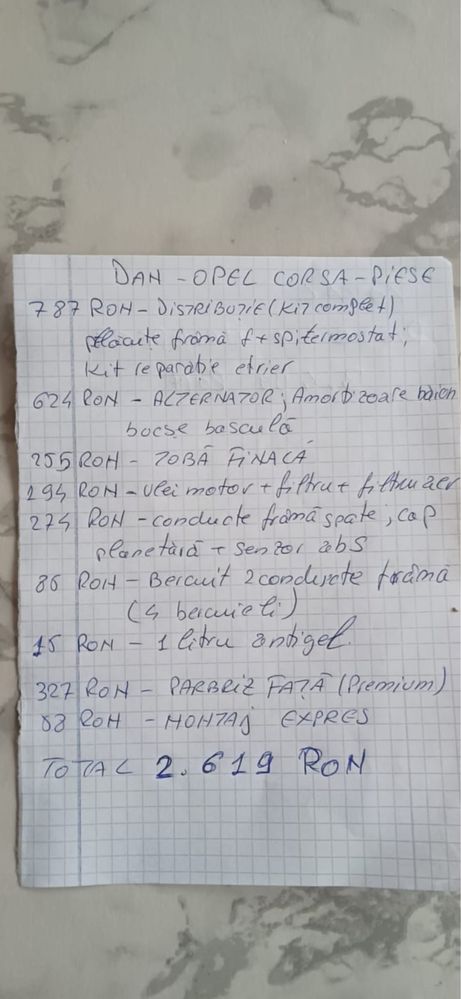 DAN - OPEL CORSA - PIESE
787 RON - DISTRIBUTIE (Kit complet)
plăcute frână f+sp; termostat;
Kit reparatie etrier
624 RON - ALTERNATOR; Amortizoare haion
bucse basculă
255 RON - TOBĂ FINALĂ
194 RON - Ulei motor + filtru + filtru aer
274 RON - conducte frână spate, cap
planetară + senzor abs
86 RON - Bercuit 2 conducte frână
(4 bercuieli)
15 RON - 1 litru antigel
327 RON - PARBRIZ FAȚĂ (Premium)
RON - MONTAJ EXPRES
TOTAL 2.619 RON